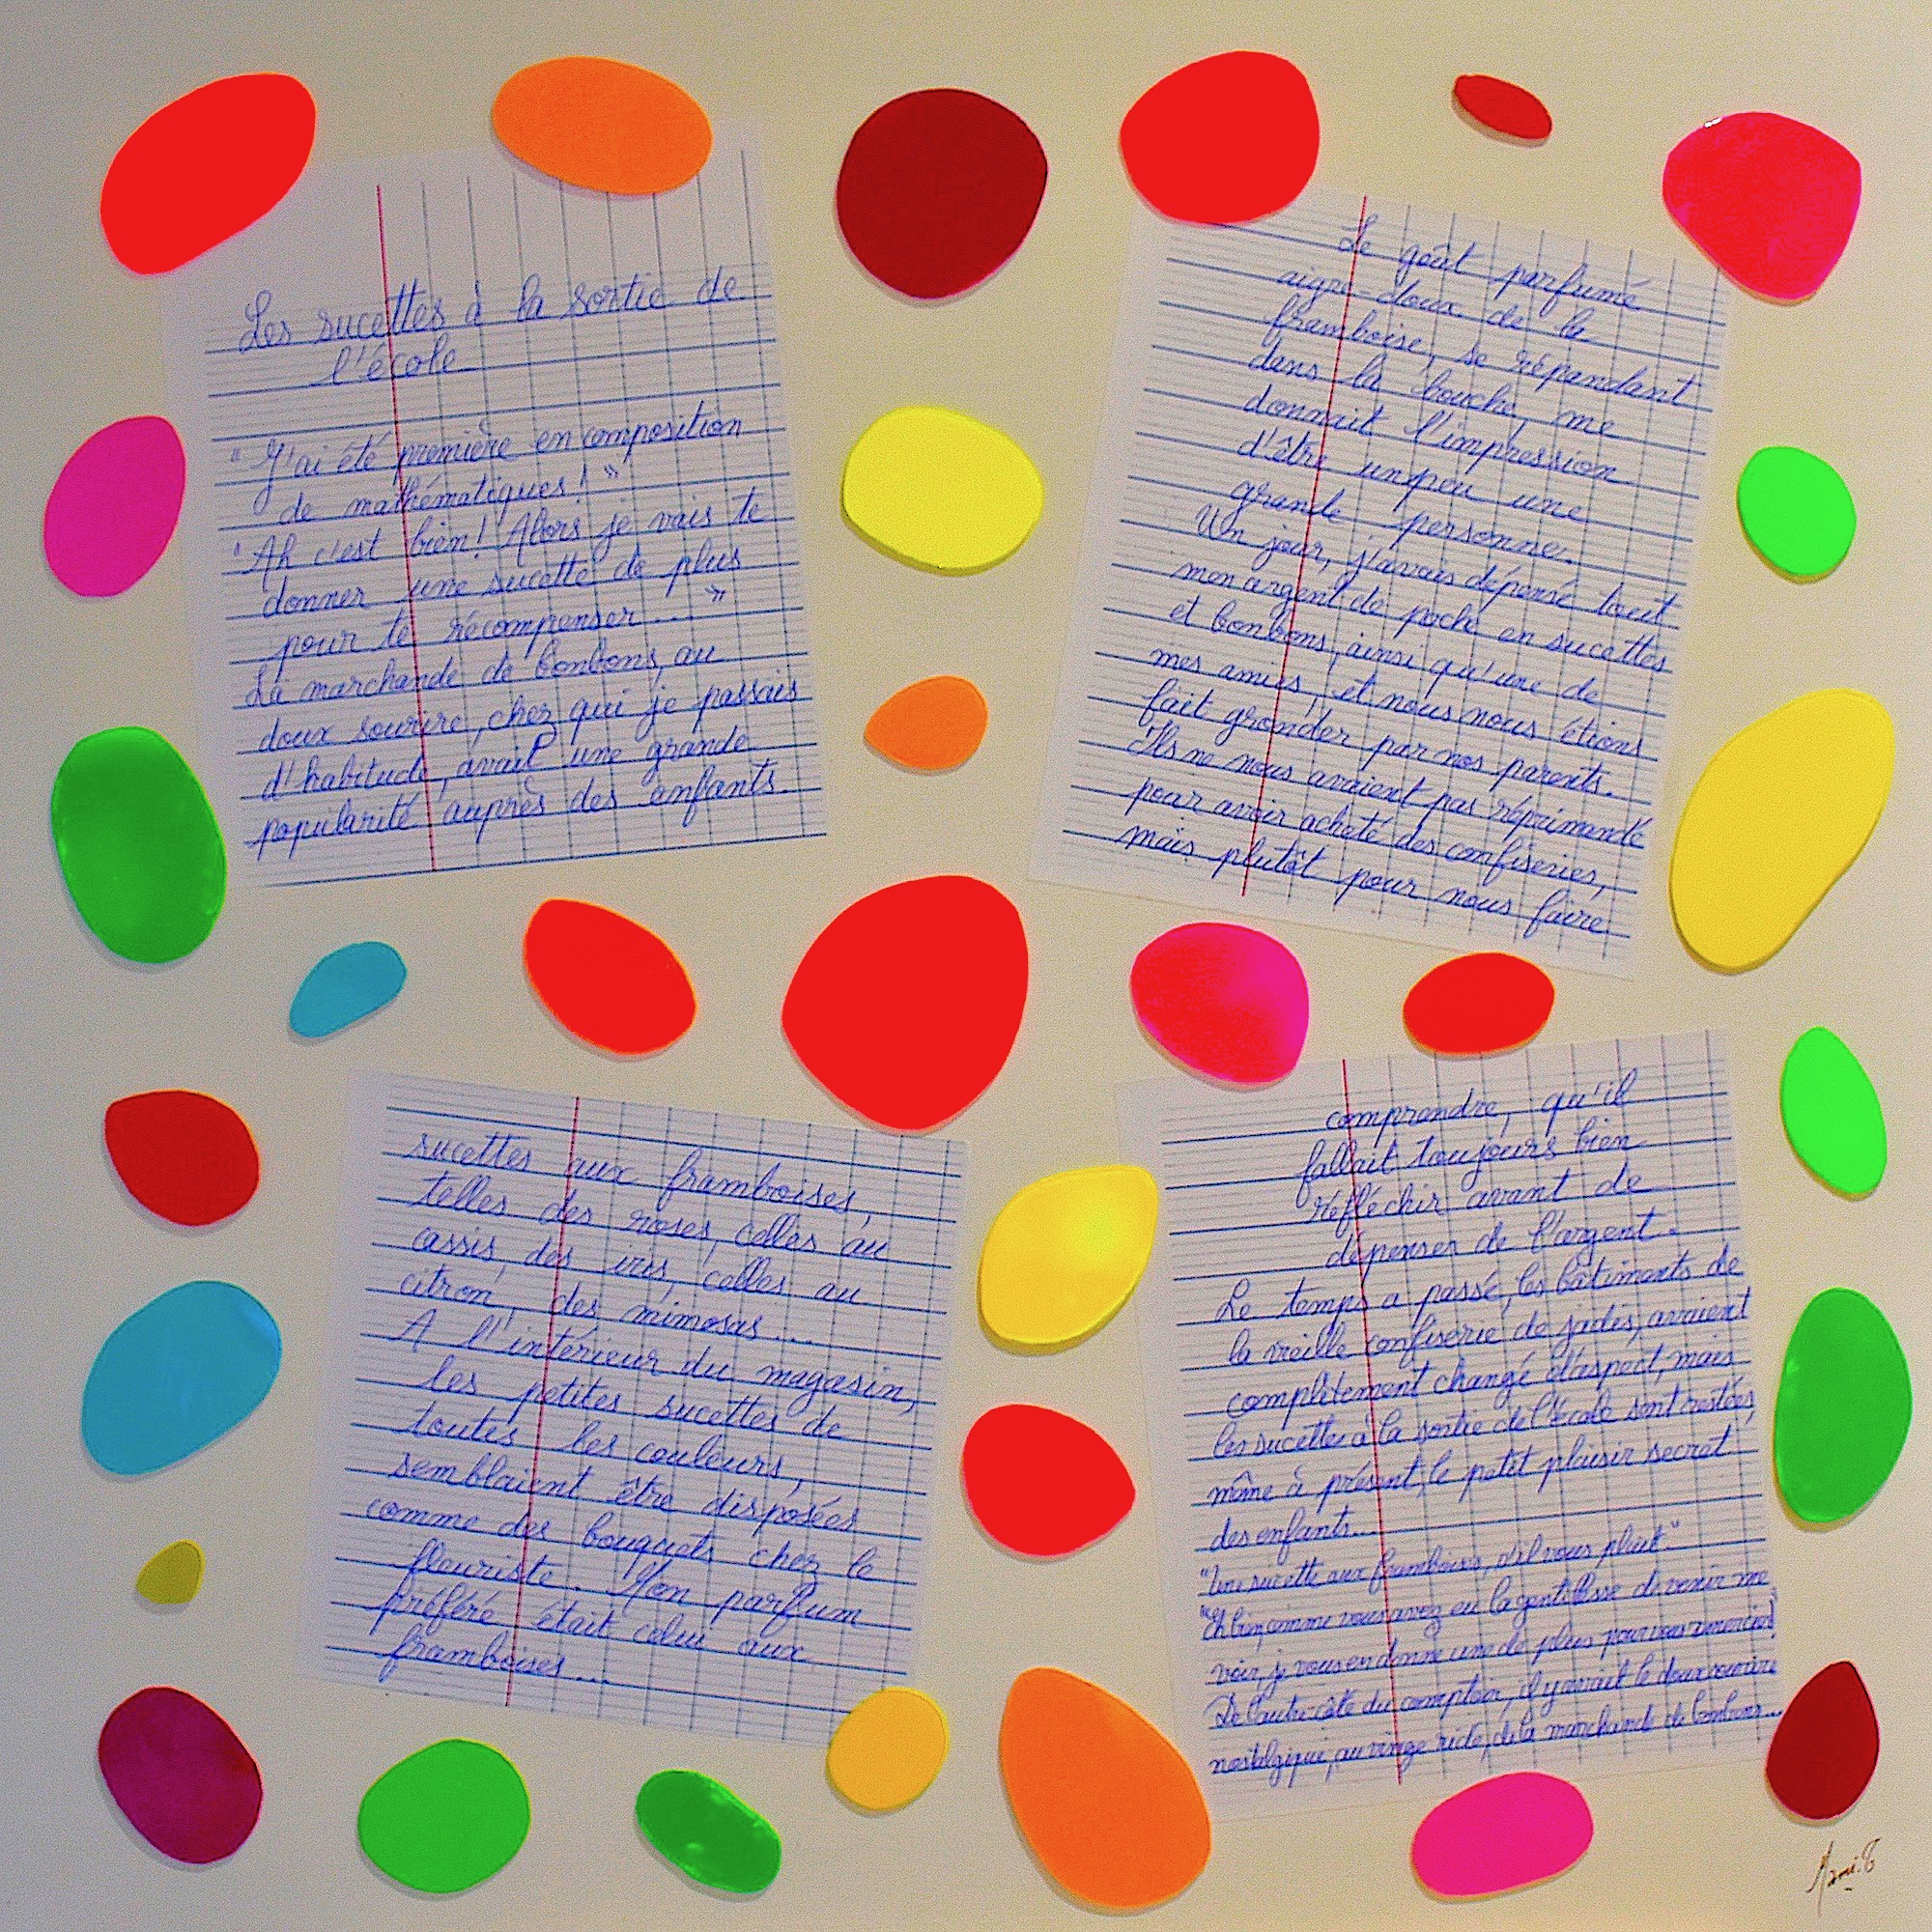 Les sucettes à la sortie de
l'école
"J'ai été première en composition
de mathématiques! "
"Ah c'est bien! Alors je vais te
donner une sucette de plus
pour te récompenser... "
La marchande de bonbons, au
doux sourire, chez qui je passais
d'habitude, avait une grande
popularité auprès des enfants.
sucettes aux framboises,
telles des roses, celles au
cassis, des iris, celles au
citron, des mimosas...
A l'intérieur du magasin,
les petites sucettes de
toutes les couleurs,
semblaient être disposées
comme des bouquets chez le
fleuriste. Mon parfum
préféré était celui aux
framboises...
Le goût parfumé
aigre-doux de la
framboise, se répandant
dans la bouche, me
donnait l'impression
d'être un peu une
grande personne.
Un jour, j'avais dépensé tout
mon argent de poche en sucettes
et bonbons, ainsi qu'une de
mes amies, et nous nous étions
fait gronder par nos parents.
Ils ne nous avaient pas réprimandé
pour avoir acheté des confiseries,
mais plutôt pour nous faire
comprendre, qu'il
fallait toujours bien
réfléchir avant de
dépenser de l'argent.
Le temps a passé, les bâtiments de
la vieille confiserie de jadis, avaient
complètement changé d'aspect, mais
les sucettes à la sortie de l'école sont restées,
même à présent, le petit plaisir secret
des enfants...
"Une sucette aux framboises, s'il vous plaît."
"Eh bien, comme vous avez eu la gentillesse de venir me
voir, je vous en donne une de plus pour vous remercier!"
De l'autre côté du comptoir, il y avait le doux sourire
nostalgique, au visage ridé, de la marchande de bonbons...